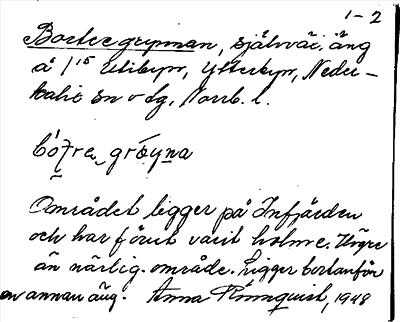 1-2
Bortre grynnan, självär. äng
å 1¹⁵ Utibyn, Ytterbyn, Neder-
kalix sn o dg, Norrb. l.
bo̍t̯re grœ́yna
Området ligger på Infjärden
och har förut varit holme. Högre
än närlig. område. Ligger bortanför
en annan äng. Anna Rönnquist, 1948